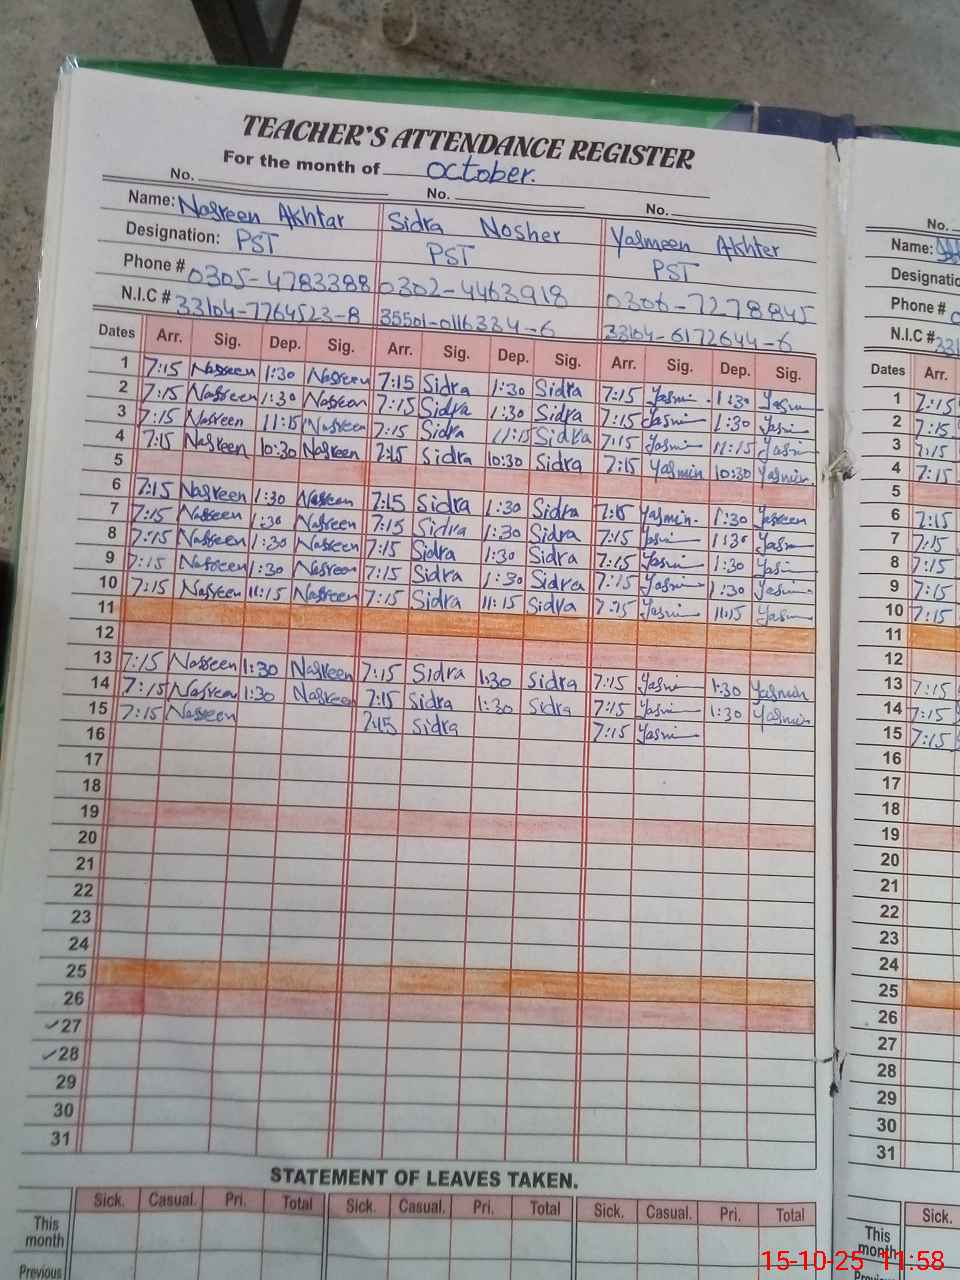 TEACHER'S ATTENDANCE REGISTER
For the month of October.
No. No. No.
Name: Nasreen Akhtar Sidra Nosher Yasmeen Akhter
Designation: PST PST PST
Phone # 0305-4783388 0302-4463918 0306-7278845
N.I.C # 33104-7764523-8 35501-0116334-6 33104-6172644-6
Dates Arr. Sig. Dep. Sig. Arr. Sig. Dep. Sig. Arr. Sig. Dep. Sig.
1 7:15 Nasreen 1:30 Nasreen 7:15 Sidra 1:30 Sidra 7:15 Yasmin 1:30 Yasmin
2 7:15 Nasreen 1:30 Nasreen 7:15 Sidra 1:30 Sidra 7:15 Yasmin 1:30 Yasmin
3 7:15 Nasreen 11:15 Nasreen 7:15 Sidra 11:15 Sidra 7:15 Yasmin 11:15 Yasmin
4 7:15 Nasreen 10:30 Nasreen 7:15 Sidra 10:30 Sidra 7:15 Yasmin 10:30 Yasmin
5
6 7:15 Nasreen 1:30 Nasreen 7:15 Sidra 1:30 Sidra 7:15 Yasmin. 1:30
7 7:15 Nasreen 1:30 Nasreen 7:15 Sidra 1:30 Sidra 7:15 Yasmin 1:30 Yasmin
8 7:15 Nasreen 1:30 Nasreen 7:15 Sidra 1:30 Sidra 7:15 Yasmin 1:30 Yasmin
9 7:15 Nasreen 1:30 Nasreen 7:15 Sidra 1:30 Sidra 7:15 Yasmin 1:30 Yasmin
10 7:15 Nasreen 11:15 Nasreen 7:15 Sidra 11:15 Sidra 7:15 Yasmin 11:15 Yasmin
11
12
13 7:15 Nasreen 1:30 Nasreen 7:15 Sidra 1:30 Sidra 7:15 Yasmin 1:30 Yasmin
14 7:15 Nasreen 1:30 Nasreen 7:15 Sidra 1:30 Sidra 7:15 Yasmin 1:30 Yasmin
15 7:15 Nasreen 7:15 Sidra 7:15 Yasmin
16
17
18
19
20
21
22
23
24
25
26
27
28
29
30
31
STATEMENT OF LEAVES TAKEN.
Sick. Casual. Pri. Total Sick. Casual. Pri. Total Sick. Casual. Pri. Total
This month
Previous
No.
Name:
Designatio
Phone #
N.I.C # 331
Dates Arr.
1 7:15
2 7:15
3 7:15
4 7:15
5
6 7:15
7 7:15
8 7:15
9 7:15
10 7:15
11
12
13 7:15
14 7:15
15 7:15
16
17
18
19
20
21
22
23
24
25
26
27
28
29
30
31
Sick.
This month
15-10-25 11:58